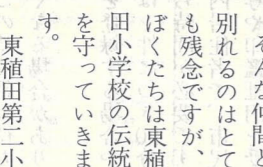 そんな仲間と
別れるのはとて
も残念ですが、
ぼくたちは東稙
田小学校の伝統
を守っていきま
す。
東稙田第二小